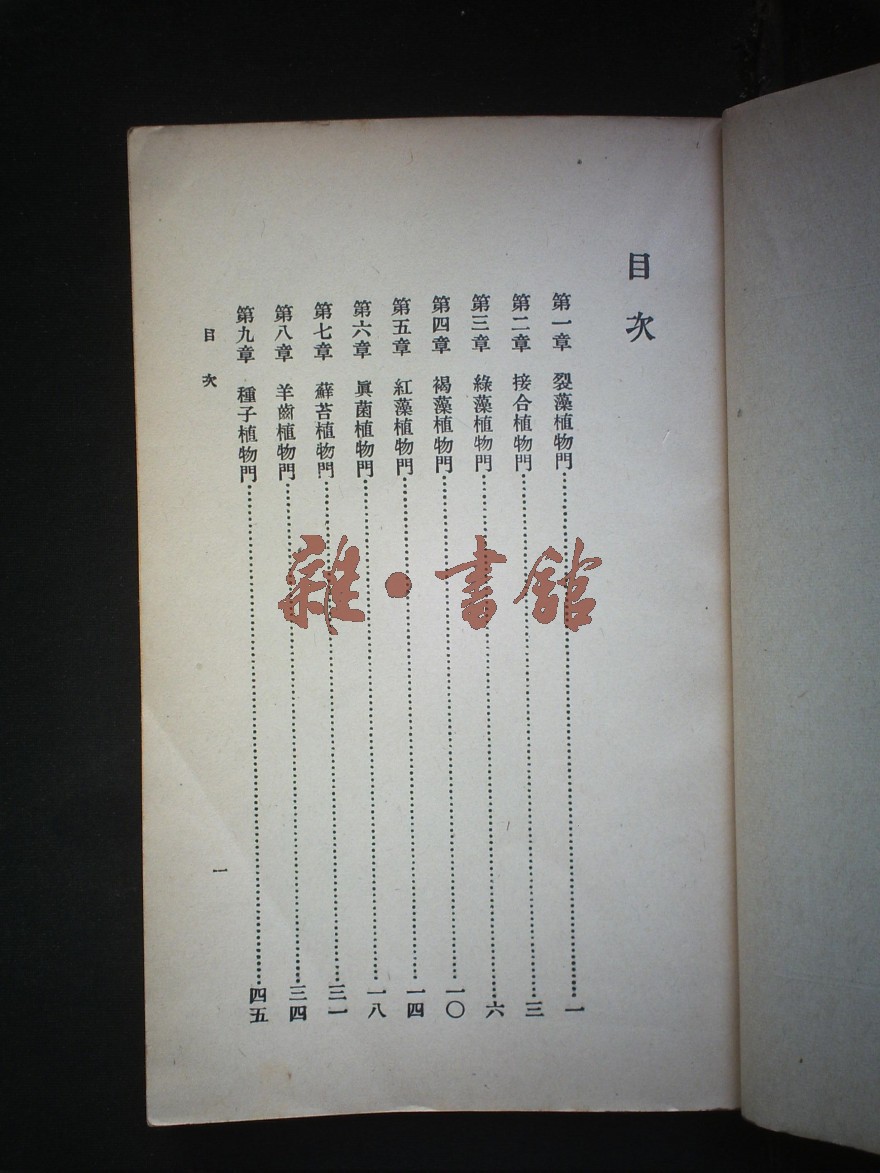 目次
第一章　裂藻植物門……一
第二章　接合植物門……三
第三章　綠藻植物門……六
第四章　褐藻植物門……一〇
第五章　紅藻植物門……一四
第六章　眞菌植物門……一八
第七章　蘚苔植物門……三一
第八章　羊齒植物門……三四
第九章　種子植物門……四五
目次
一
雜・書舘